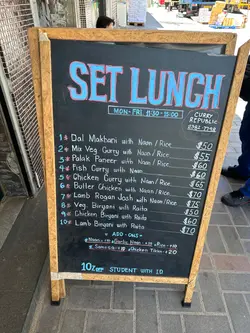 SET LUNCH
MON-FRI 11:30-15:00
CURRY
REPUBLIC
1 Dal Makhani with Naan/Rice $50
2 Mix Veg Curry with Naan/Rice $55
3 Palak Paneer with Naan/Rice $60
4 Fish Curry with Naan/Rice $60
5 Chicken Curry with Naan/Rice $60
6 Butter Chicken with Naan/Rice $65
7 Lamb Rogan Josh with Naan/Rice $70
8 Veg. Biryani with Raita $50
9 Chicken Biryani with Raita $60
10 Lamb Biryani with Raita $70
ADD-ONS
10% OFF STUDENT WITH ID